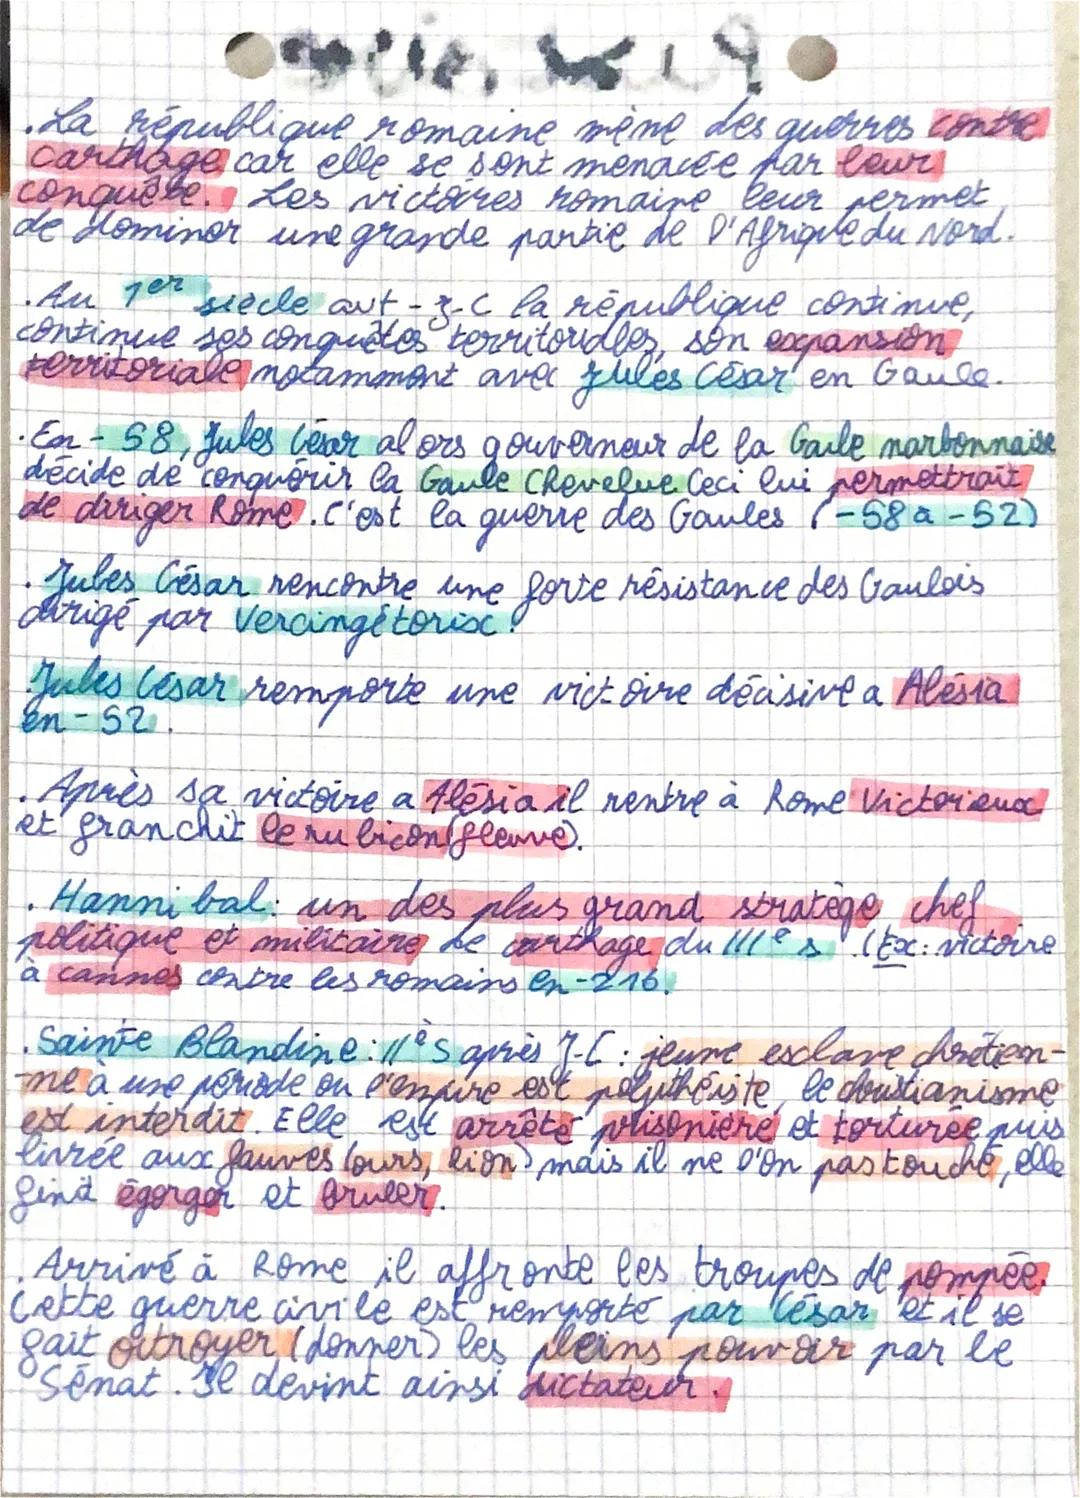 . La république romaine mène des guerres contre
carthage car elle se sont menacée par leur
conquête. Les victoires romaine leur permet
de dominer une grande partie de l'Afrique du Nord.
. Au 1er siècle avt - J-C la république continue,
continue ses conquêtes territoriales, son expansion
territoriale notamment avec Jules César en Gaule.
. En - 58, Jules César alors gouverneur de la Gaule narbonnaise
décide de conquérir la Gaule Chevelue. Ceci lui permettrait
de diriger Rome. C'est la guerre des Gaules (-58 a -52)
. Jules César rencontre une forte résistance des Gaulois
dirigé par Vercingétorix.
Jules César remporte une victoire décisive a Alésia
en - 52.
. Après sa victoire a Alésia il rentre à Rome Victorieux
et franchit le rubicon (fleuve).
. Hannibal : un des plus grand stratège chef
politique et militaire de carthage du IIIe s. (Ex : victoire
à cannes contre les romains en -216.
. Sainte Blandine : IIè s après J-C : jeune esclave chrétien-
-ne à une période ou l'empire est polythéiste, le christianisme
est interdit. Elle est arrêté prisonière et torturée puis
livrée aux fauves (ours, lion) mais il ne l'on pas touché, elle
finit égorger et bruler.
. Arrivé à Rome il affronte les troupes de pompée.
Cette guerre civile est remporté par César et il se
fait octroyer (donner) les pleins pouvoir par le
Sénat. Il devint ainsi dictateur.